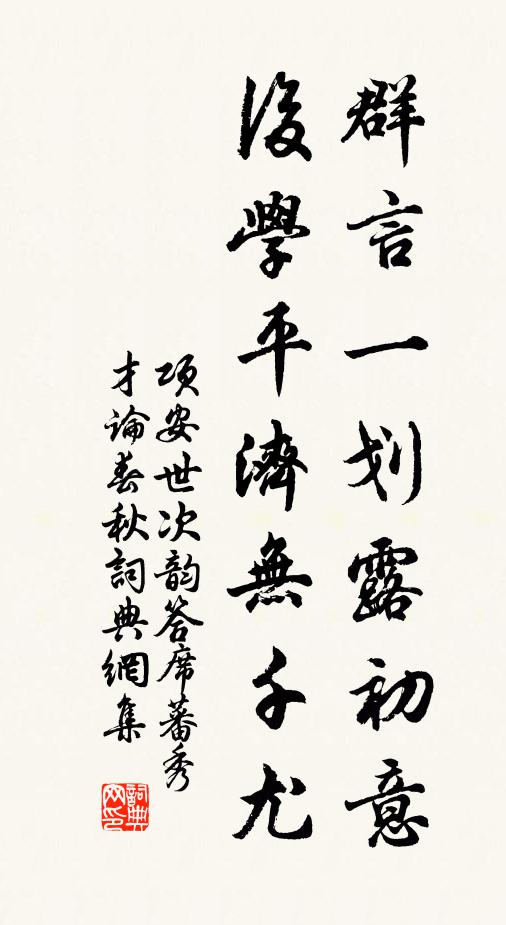 群言一划露初意
後學平濟無千尤
项安世次韵答席蕃秀
才論春秋詞典網集
詞典网印